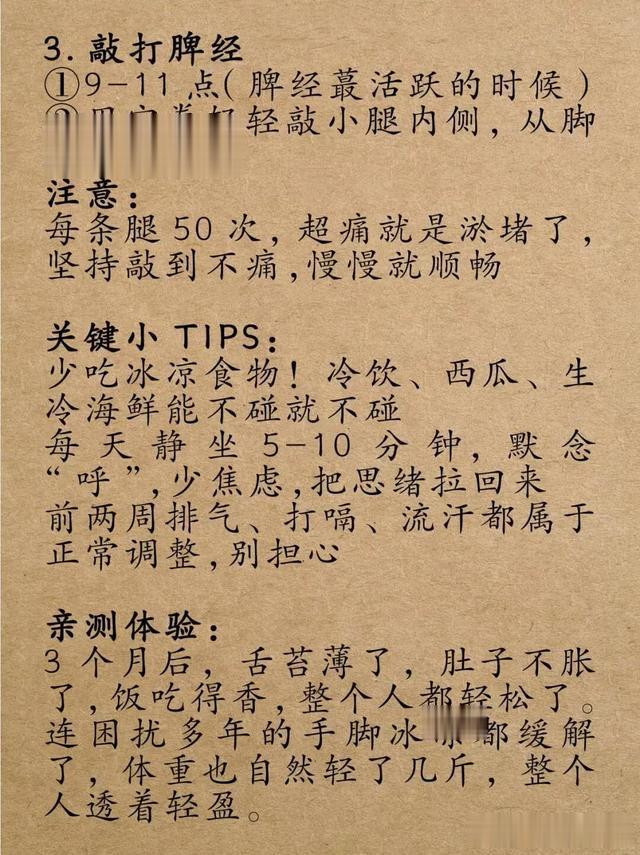 3. 敲打脾经
①9-11点(脾经蕞活跃的时候)
轻敲小腿内侧，从脚
注意：
每条腿50次，超痛就是淤堵了，
坚持敲到不痛,慢慢就顺畅
关键小TIPS：
少吃冰凉食物！冷饮、西瓜、生
冷海鲜能不碰就不碰
每天静坐5-10分钟，默念
“呼”,少焦虑,把思绪拉回来
前两周排气、打嗝、流汗都属于
正常调整,别担心
亲测体验：
3个月后，舌苔薄了，肚子不胀
了,饭吃得香,整个人都轻松了。
连困扰多年的手脚冰都缓解
了，体重也自然轻了几斤，整个
人透着轻盈。